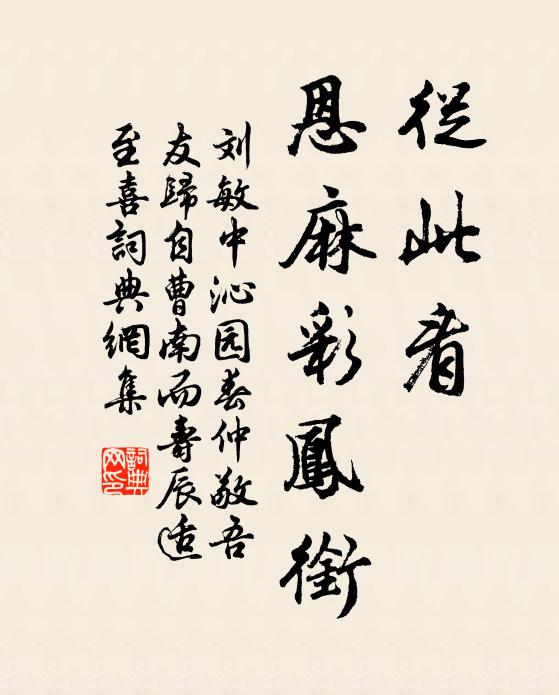 從此看
恩麻彩鳳銜
刘敏中沁园春仲敬吾
友歸自曹南而壽辰适
至喜詞典網集
詞典
网印